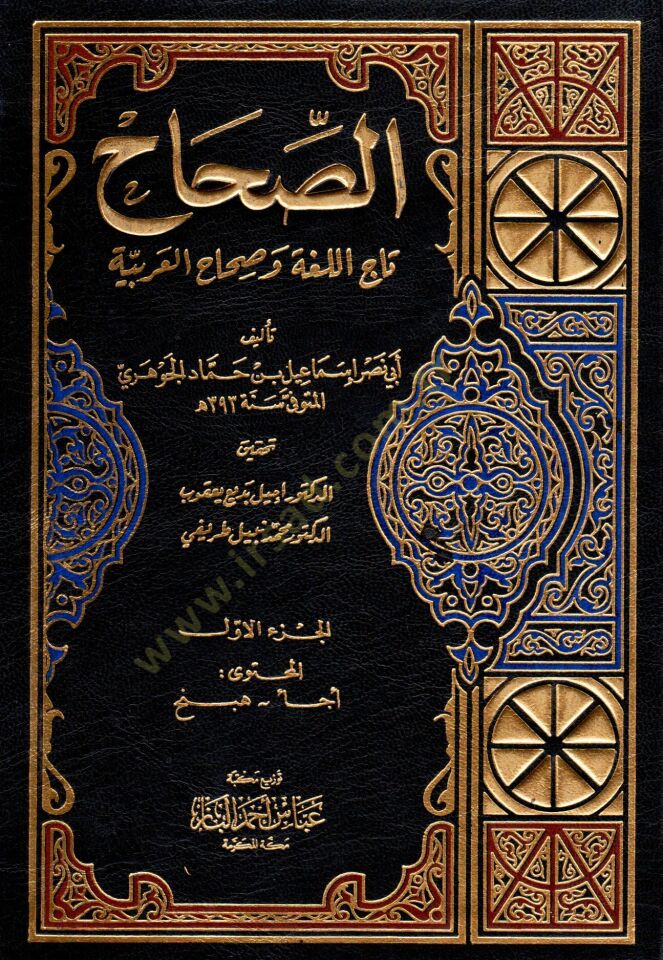 الصِّحَاح
تاج اللغة وَصِحَاح العَربيّة
تأليف
أبي نَصْر إسمَاعيل بن حَمَّاد الجَوهَريّ
المتوفى سَنة ٣٩٣هـ
تحقيق
الدكتور اميل بديع يعقوب
الدكتور محمّد نبيل طريفي
الجزء الأوّل
المحتوى:
أجأ - هبنخ
توزيع مكتبة
عَبّاس أحمَد البَاز
مكة المكرّمة
www.irsad.com